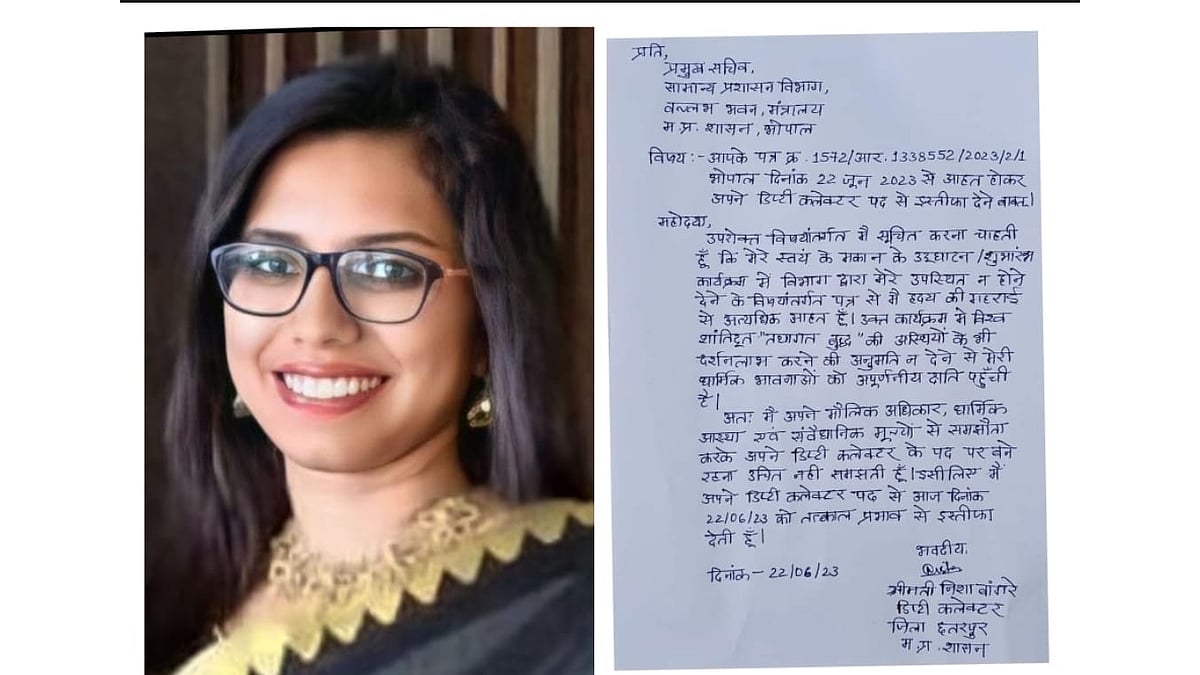 प्रति,
प्रमुख सचिव,
सामान्य प्रशासन विभाग,
वल्लभ भवन, मंत्रालय
म.प्र. शासन, भोपाल
विषय :- आपके पत्र क्र. 1572/आर. 1338552/2023/2/1
भोपाल दिनांक 22 जून 2023 से आहत होकर
अपने डिप्टी कलेक्टर पद से इस्तीफा देने बावत्।
महोदया,
उपरोक्त विषयांतर्गत मै सूचित करना चाहती
हूँ कि मेरे स्वयं के मकान के उद्घाटन /शुभारंभ
कार्यक्रम में विभाग द्वारा मेरे उपस्थित न होने
देने के विषयांतर्गत पत्र से मै हृदय की गहराई
से अत्यधिक आहत हूँ। उक्त कार्यक्रम मे विश्व
शांतिदूत "तथागत बुद्ध" की अस्थियों के भी
दर्शनलाभ करने की अनुमति न देने से मेरी
धार्मिक भावनाओं को अपूर्णनीय क्षति पहुँची
है।
अतः मै अपने मौलिक अधिकार, धार्मिक
आस्था एवं संवैधानिक मूल्यों से समझौता
करके अपने डिप्टी कलेक्टर के पद पर बने
रहना उचित नही समझती हूँ। इसीलिए मैं
अपने डिप्टी कलेक्टर पद से आज दिनांक
22/06/23 को तत्काल प्रभाव से इस्तीफा
देती हूँ।
भवदीय.
दिनांक - 22/06/23
श्रीमती निशा बांगरे
डिप्टी कलेक्टर
जिला छतरपुर
म.प्र. शासन